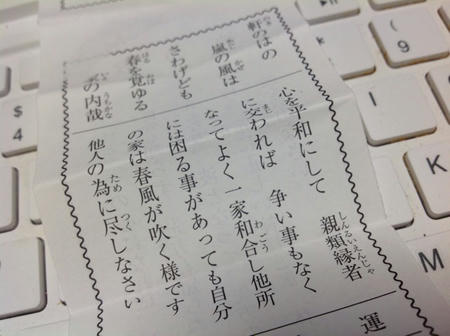 軒のはの
嵐の風は
さわげども
春を覚ゆる
家の内哉
心を平和にして 親類縁者
に交われば 争い事もなく
なってよく一家和合し他所
には困る事があっても自分
の家は春風が吹く様です
他人の為に尽しなさい
運
$
4
(
9
K
M